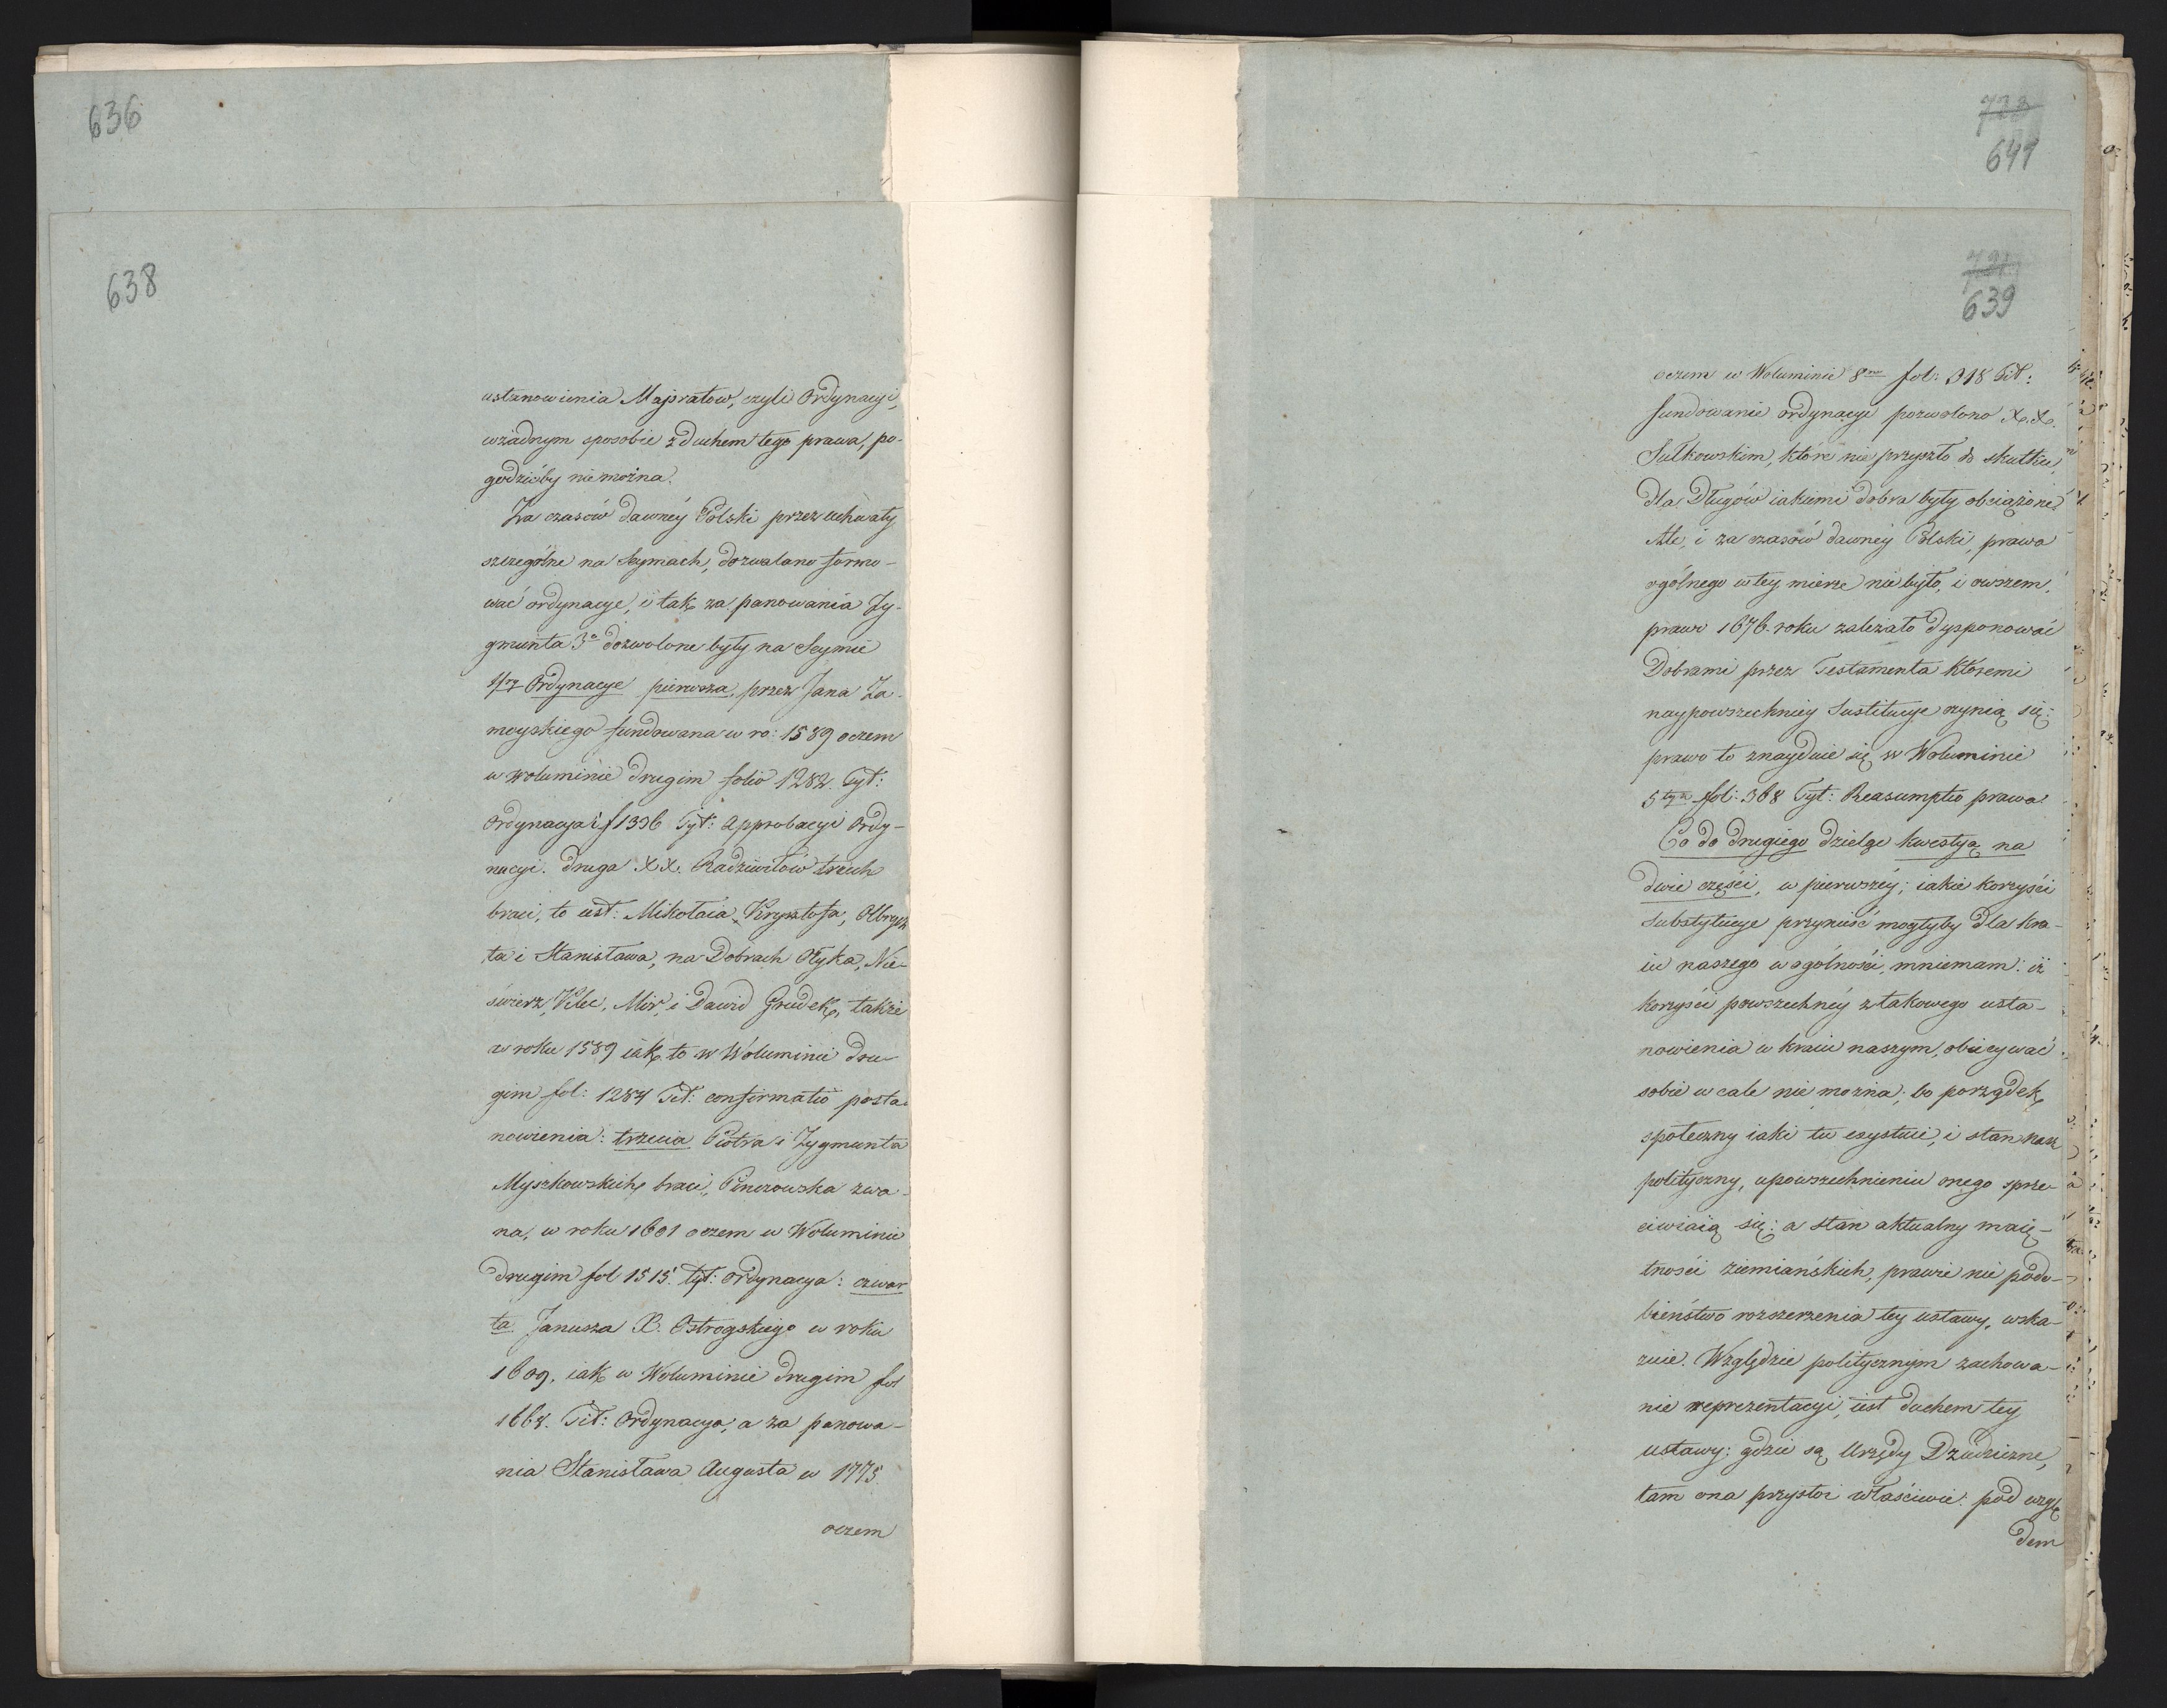 636
638
ustanowienia Majoratow, czyli Ordynacyi,
wżadnym sposobie z duchem tego prawa, po-
godzićby nie można.
Za czasów dawnéy Polski przez uchwały
szczególne na Seymach, dozwalano formo-
wać ordynacye, i tak za panowania Zy-
gmunta 3o dozwolone były na Seymie
Ordynacye pierwsza, przez Jana Za-
moyskiego fundowana w ro: 1589 oczem
w woluminie drugim folio 1282. Tyt:
Ordynacya i f 1336 Tyt: Approbacyi Ordy-
nacyi. druga XX. Radziwiłów trzech
braci, to iest: Mikołaia, Krysztofa, Olbrych
ta i Stanisława, na Dobrach Ołyka, Nie-
świerz, Klec, Mir, i Dawid Grudek, także
w roku 1589 iak to w Woluminie dru-
gim fol: 1284 Tit: confirmatio posta-
nowienia: trzecia Piotra i Zygmunta
Myszkowskich, braci, Pinczowska zwa-
na, w roku 1601 oczem w Woluminie
drugim fol 1515. tyt: ordynacya: czwar
ta Janusza X. Ostrogskiego w roku
1609. iak w Woluminie drugim fol
1664. Tit: Ordynacya; a za panowa-
nia Stanisława Augusta w 1775.
oczem
733
641
731
639
oczem w Woluminie 8mo fol: 318 Tit:
fundowanie ordynacyi pozwolono X.X.
Sułkowskim, które nie przyszło do skutku,
dla Długów iakiemi dobra były obciążone.
Ale, i za czasów dawnéy Polski, prawa
ogólnego w tey mierze nie było, i owszem,
prawo 1676. roku zależało dysponować
Dobrami przez Testamenta któremi
naypowszechniey Sustitucye czynią się:
prawo to znayduie się w Woluminie
5tym fol: 368 Tyt: Reasumptio prawa.
Co do drugiego dzielę kwestyą na
dwie części, w pierwszéy; iakie korzyści
Substytucye przynieść mogłyby dla kra-
iu naszego w ogólności, mniemam: iż
korzyści powszechnéy z takowego usta-
nowienia w kraiu naszym, obiecywać
sobie w cale nie można; bo porządek
społeczny iaki tu exystuie, i stan nasz
polityczny, upowszechnieniu onego sprze-
ciwiaią się: a stan aktualny maię-
tności ziemiańskich, prawie nie podo-
bieństwo rozszerzenia tey ustawy, wska-
zuie. Względzie politycznym zachowa-
nie reprezentacyi, iest duchem tey
ustawy: gdzie są Urzędy Dziedziczne,
tam ona przystoi właściwie: pod wzglę
dem